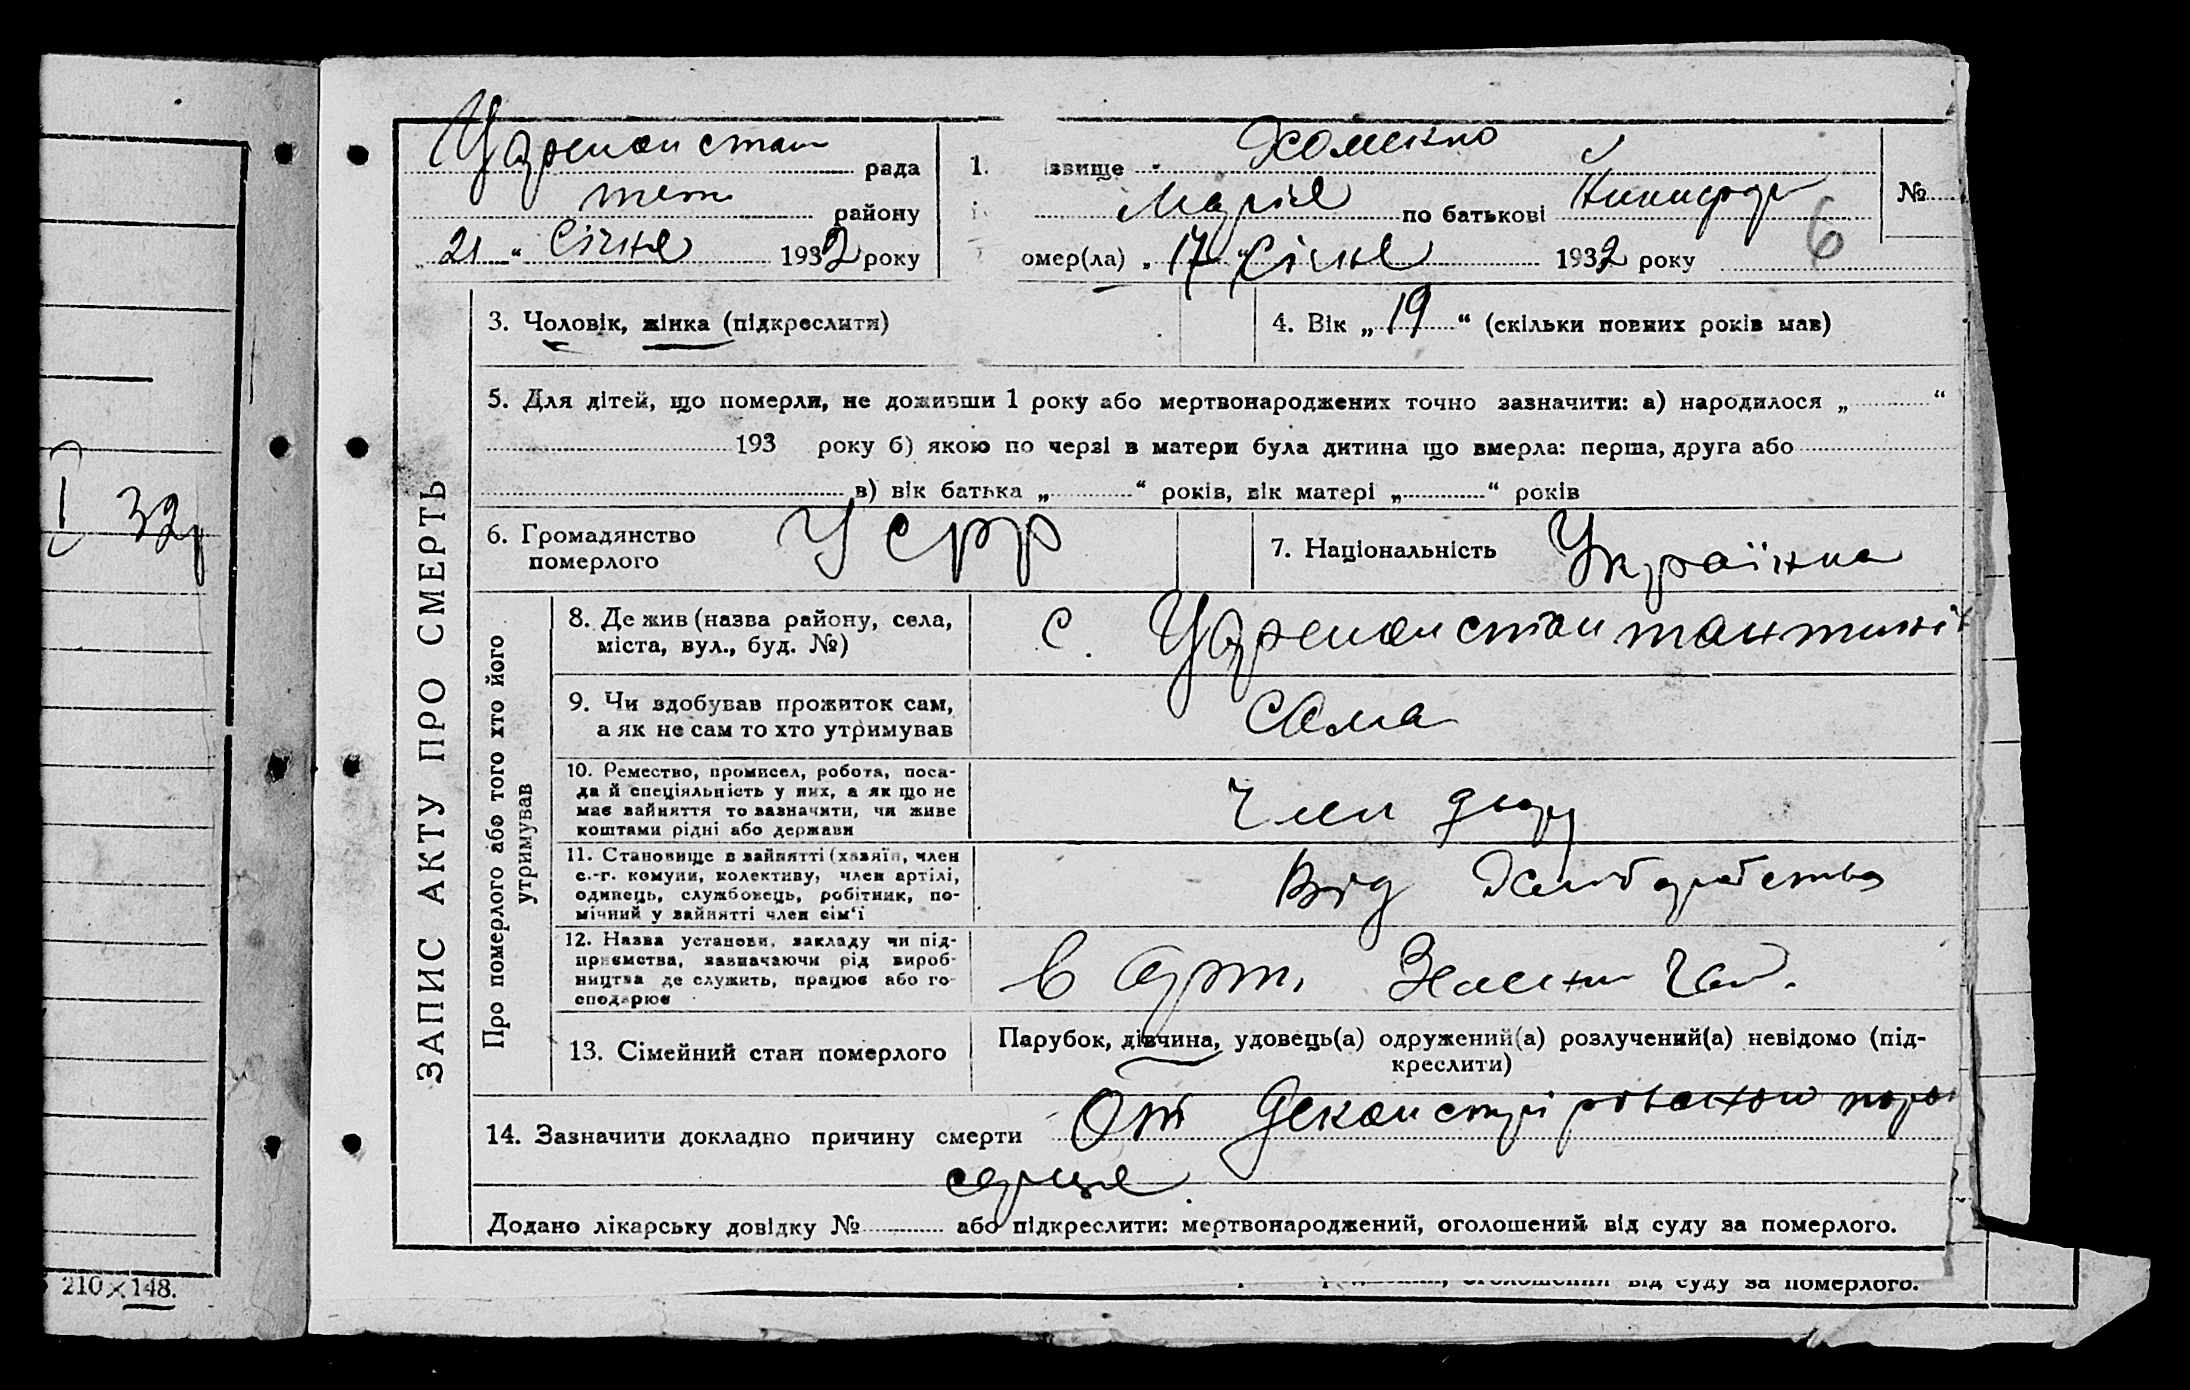 Царекон стан рада
тет району
„ 21 “ Січня 1932 року
1. звище Хоменко
Марія по батькові Никифор
омер(ла) „ 17 “ Січня 1932 року
№
6
3. Чоловік, жінка (підкреслити)
4. Вік „ 19 “ (скільки повних років мав)
5. Для дітей, що померли, не доживши 1 року або мертвонароджених точно зазначити: а) народилося „ “
193 року б) якою по черзі в матери була дитина що вмерла: перша, друга або
в) вік батька „ “ років, вік матері „ “ років
6. Громадянство
померлого
УСРР
7. Національність Українка
ЗАПИС АКТУ ПРО СМЕРТЬ
Про померлого або того хто його
утримував
8. Де жив (назва району, села,
міста, вул., буд. №)
с.
9. Чи здобував прожиток сам,
а як не сам то хто утримував
Сама
10. Ремество, промисел, робота, поса-
да й спеціяльність у них, а як що не
має зайняття то зазначити, чи живе
коштами рідні або держави
Член двору
11. Становище в зайнятті (хазяїн, член
с.-г. комуни, колективу, член артілі,
одинець, службовець, робітник, по-
мічний у зайнятті член сім'ї
Від Хліборобства
12. Назва установи, закладу чи під-
приємства, зазначаючи рід вироб-
ництва де служить, працює або го-
сподарює
в арт. Зелений Гай.
13. Сімейний стан померлого
Парубок, дівчина, удовець(а) одружений(а) розлучений(а) невідомо (під-
креслити)
14. Зазначити докладно причину смерти От
серця.
Додано лікарську довідку № або підкреслити: мертвонароджений, оголошений від суду за померлого.
оголошений від суду за померлого.
32р
210×148.